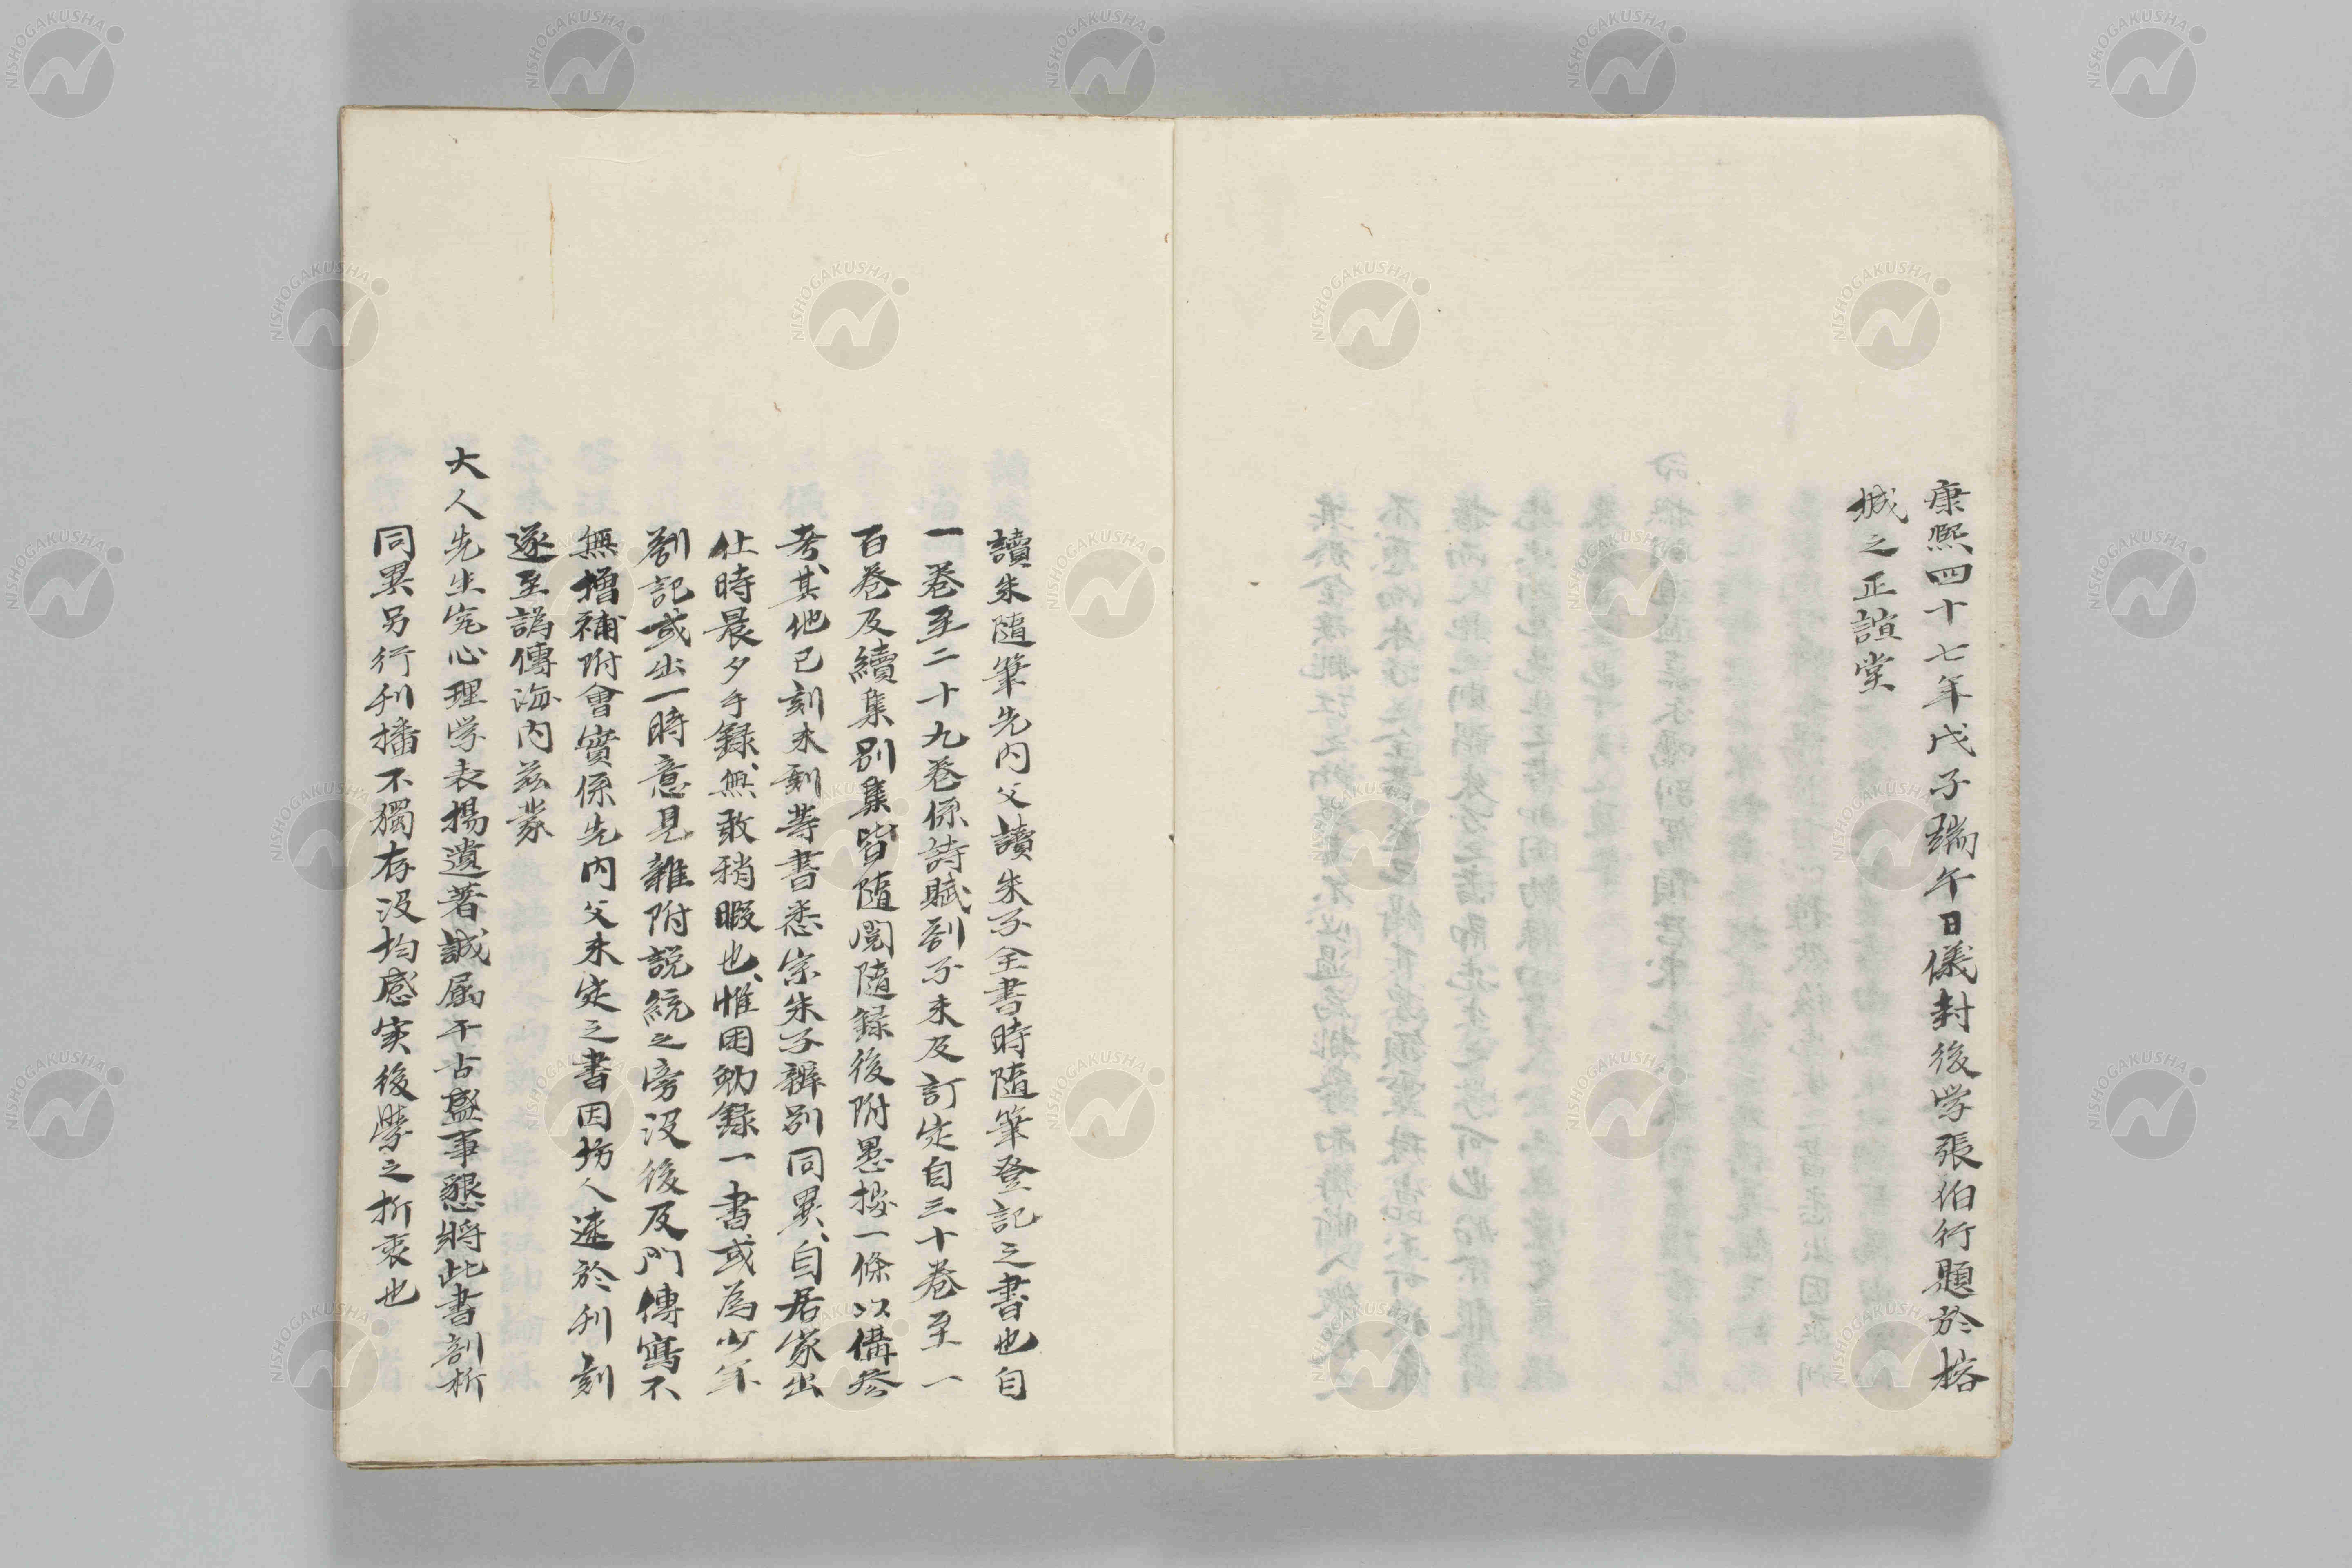 康熙四十七年戊子端午日儀封後学張伯行題於榕
城之正誼堂
讀朱隨筆先内父讀朱子全書時隨筆登記之書也自
一卷至二十九卷係詩賦劄子未及訂定自三十卷至一
百卷及續集别集皆隨閲隨録後附愚按一條以備参
考其他已刻未刻等書悉宗朱子辨别同異自居家出
仕時晨夕手録無敢稍暇也惟困勉録一書或為少年
劄記或出一時意見雜附説統之旁没後及門傳寫不
無增補附會實係先内父未定之書因坊人速於刋刻
遂至譌傳海内兹蒙
大人先生究心理学表揚遺著誠屬千古盛事懇將此書剖析
同異另行刋播不獨存没均感实後學之折衷也
NISHOGAKUSHA